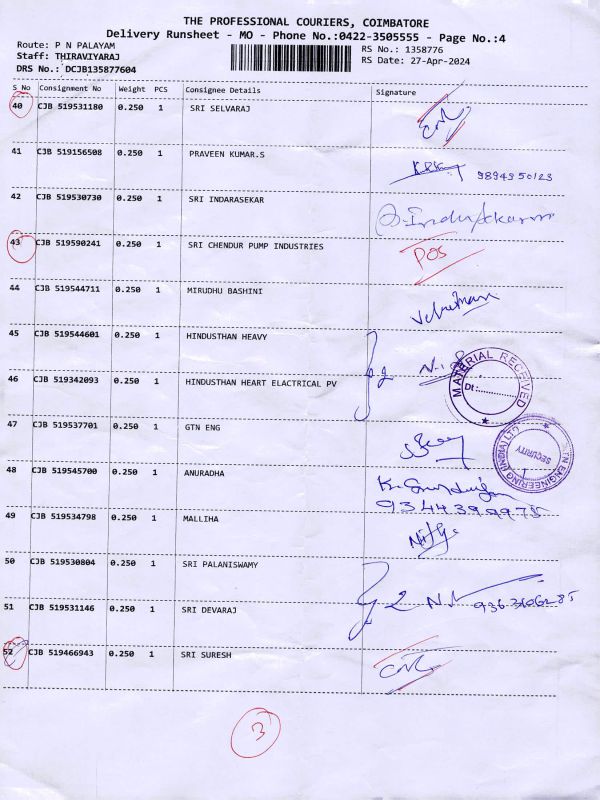 THE PROFESSIONAL COURIERS, COIMBATORE
Delivery Runsheet - MO - Phone No.:0422-3505555 - Page No.:4
Route: P N PALAYAM
Staff: THIRAVIYARAJ
DRS No.: DCJB135877604
RS No.: 1358776
RS Date: 27-Apr-2024
S No Consignment No Weight PCS Consignee Details Signature
40 CJB 519531180 0.250 1 SRI SELVARAJ
41 CJB 519156508 0.250 1 PRAVEEN KUMAR.S
42 CJB 519530730 0.250 1 SRI INDARASEKAR
43 CJB 519590241 0.250 1 SRI CHENDUR PUMP INDUSTRIES POS
44 CJB 519544711 0.250 1 MIRUDHU BASHINI
45 CJB 519544601 0.250 1 HINDUSTHAN HEAVY
46 CJB 519342093 0.250 1 HINDUSTHAN HEART ELACTRICAL PV
MATERIAL RECEIVED
Dt:
47 CJB 519537701 0.250 1 GTN ENG
ENGINEERING (INDIA) LTD
SECURITY
48 CJB 519545700 0.250 1 ANURADHA
49 CJB 519534798 0.250 1 MALLIHA
50 CJB 519530804 0.250 1 SRI PALANISWAMY
51 CJB 519531146 0.250 1 SRI DEVARAJ
52 CJB 519466943 0.250 1 SRI SURESH
3